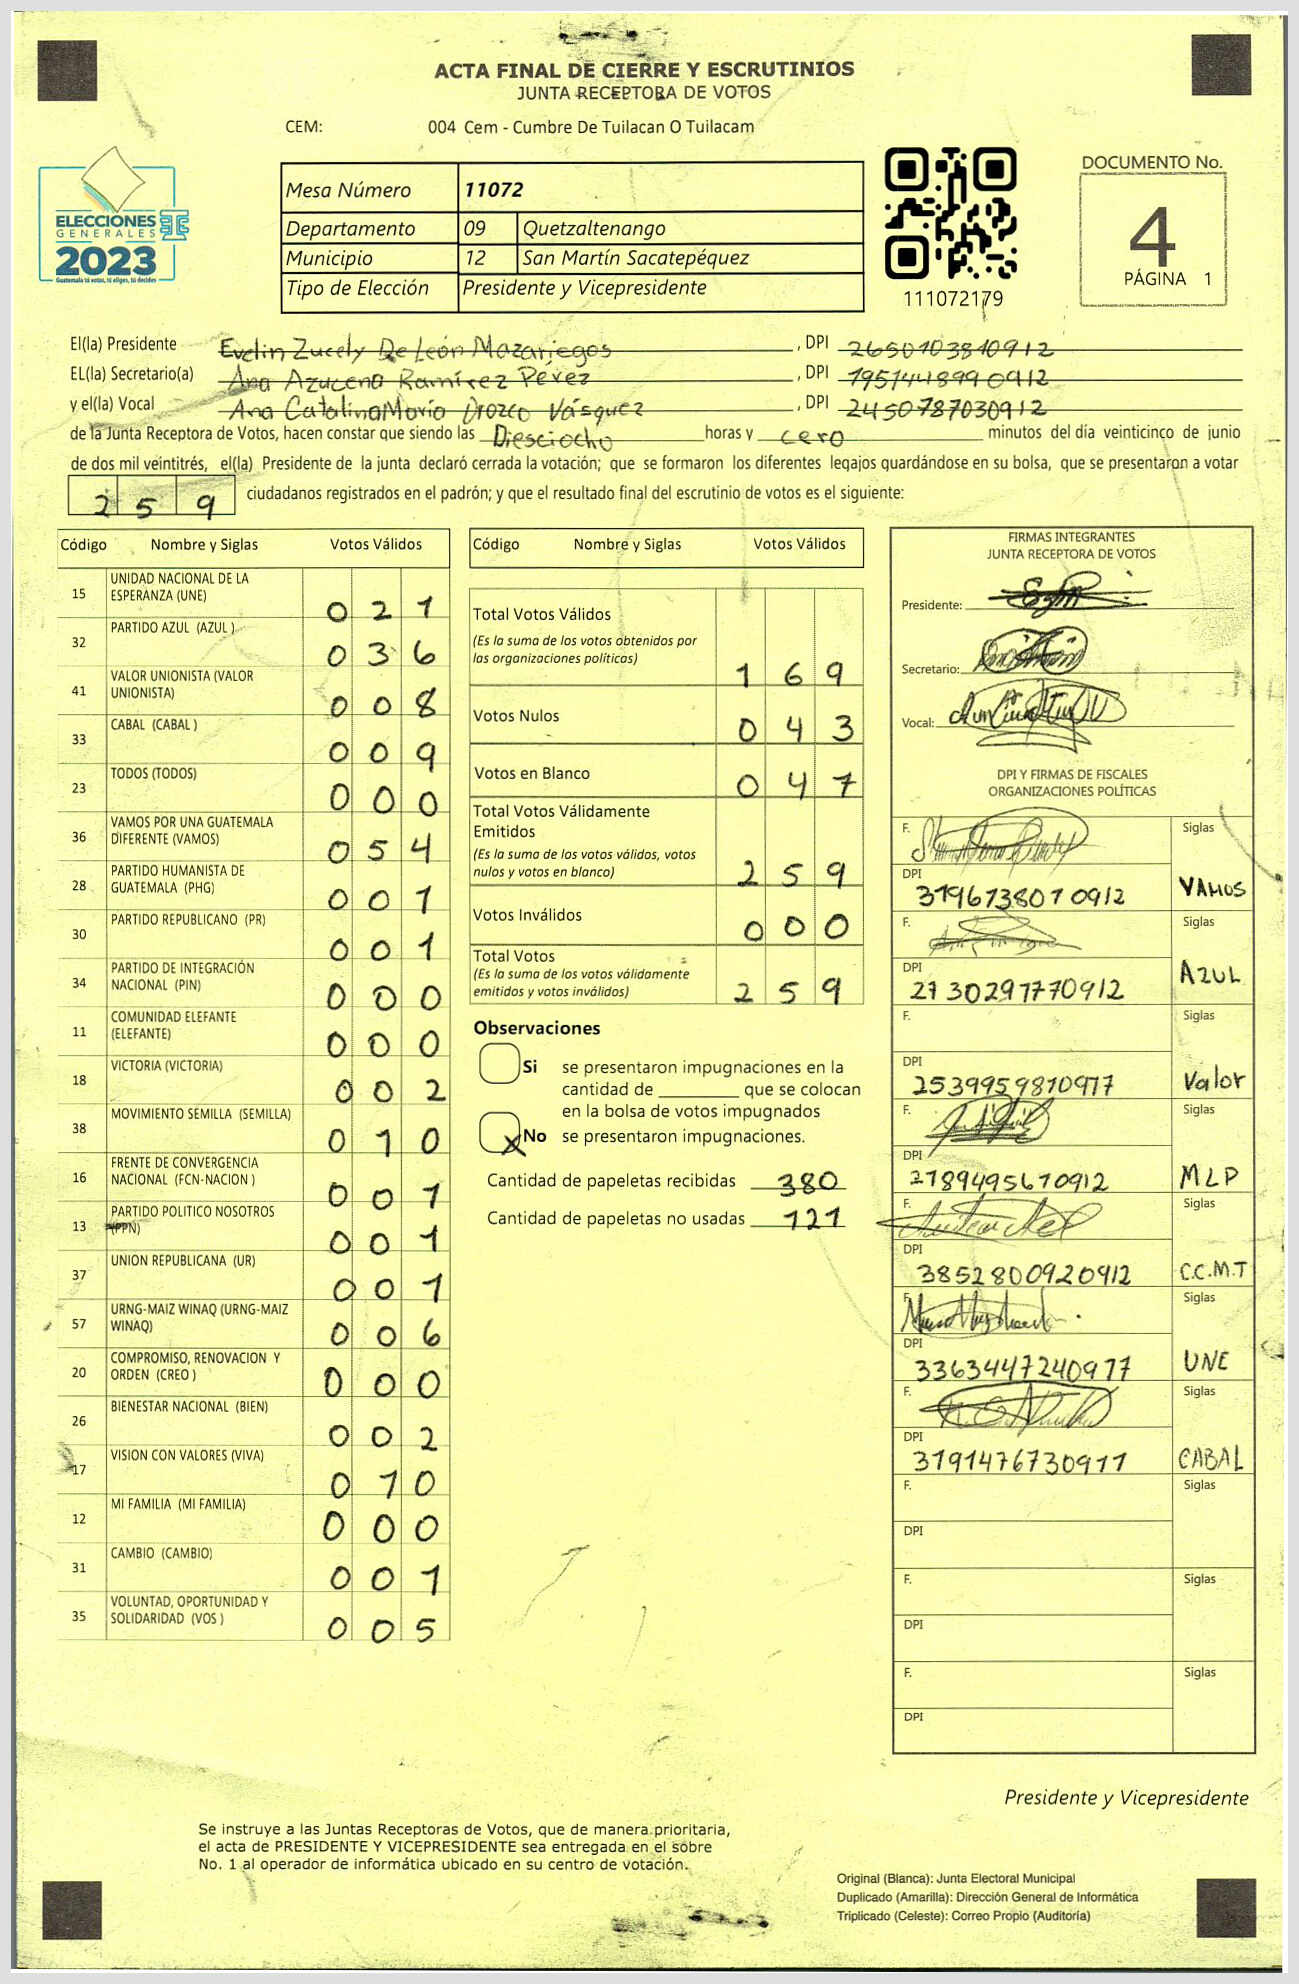 ACTA FINAL DE CIERRE Y ESCRUTINIOS
JUNTA RECEPTORA DE VOTOS
CEM: 004 Cem - Cumbre De Tuilacan O Tuilacam
ELECCIONES
GENERALES
2023
Guatemala tú votas, tú eliges, tú decides
Mesa Número 11072
Departamento 09 Quetzaltenango
Municipio 12 San Martín Sacatepéquez
Tipo de Elección Presidente y Vicepresidente
111072179
DOCUMENTO No.
4
PÁGINA 1
El(la) Presidente Evelin Zucely De León Mazariegos, DPI 2650103810912
EL(la) Secretario(a) Ana Azucena Ramírez Pérez, DPI 1951448990912
y el(la) Vocal Ana Catalina María Orozco Vásquez, DPI 2450787030912
de la Junta Receptora de Votos, hacen constar que siendo las Diesciocho horas y cero minutos del día veinticinco de junio
de dos mil veintitrés, el(la) Presidente de la junta declaró cerrada la votación; que se formaron los diferentes legajos guardándose en su bolsa, que se presentaron a votar
259 ciudadanos registrados en el padrón; y que el resultado final del escrutinio de votos es el siguiente:
Código Nombre y Siglas Votos Válidos
15 UNIDAD NACIONAL DE LA ESPERANZA (UNE) 021
32 PARTIDO AZUL (AZUL ) 036
41 VALOR UNIONISTA (VALOR UNIONISTA) 008
33 CABAL (CABAL ) 009
23 TODOS (TODOS) 000
36 VAMOS POR UNA GUATEMALA DIFERENTE (VAMOS) 054
28 PARTIDO HUMANISTA DE GUATEMALA (PHG) 001
30 PARTIDO REPUBLICANO (PR) 001
34 PARTIDO DE INTEGRACIÓN NACIONAL (PIN) 000
11 COMUNIDAD ELEFANTE (ELEFANTE) 000
18 VICTORIA (VICTORIA) 002
38 MOVIMIENTO SEMILLA (SEMILLA) 010
16 FRENTE DE CONVERGENCIA NACIONAL (FCN-NACION ) 001
13 PARTIDO POLITICO NOSOTROS (PPN) 001
37 UNION REPUBLICANA (UR) 001
57 URNG-MAIZ WINAQ (URNG-MAIZ WINAQ) 006
20 COMPROMISO, RENOVACION Y ORDEN (CREO ) 000
26 BIENESTAR NACIONAL (BIEN) 002
17 VISION CON VALORES (VIVA) 010
12 MI FAMILIA (MI FAMILIA) 000
31 CAMBIO (CAMBIO) 001
35 VOLUNTAD, OPORTUNIDAD Y SOLIDARIDAD (VOS ) 005
Código Nombre y Siglas Votos Válidos
Total Votos Válidos
(Es la suma de los votos obtenidos por
las organizaciones políticas) 169
Votos Nulos 043
Votos en Blanco 047
Total Votos Válidamente
Emitidos
(Es la suma de los votos válidos, votos
nulos y votos en blanco) 259
Votos Inválidos 000
Total Votos
(Es la suma de los votos válidamente
emitidos y votos inválidos) 259
Observaciones
Si se presentaron impugnaciones en la
cantidad de ________ que se colocan
en la bolsa de votos impugnados
X No se presentaron impugnaciones.
Cantidad de papeletas recibidas 380
Cantidad de papeletas no usadas 121
FIRMAS INTEGRANTES
JUNTA RECEPTORA DE VOTOS
Presidente:
Secretario:
Vocal:
DPI Y FIRMAS DE FISCALES
ORGANIZACIONES POLÍTICAS
F. Siglas
DPI 3196738010912 VAMOS
F. Siglas
DPI 2730291770912 AZUL
F. Siglas
DPI 2539959810917 Valor
F. Siglas
DPI 2789495610912 MLP
F. Siglas
DPI 3852800920912 C.C.M.T
F. Siglas
DPI 3363447240917 UNE
F. Siglas
DPI 3191476730911 CABAL
F. Siglas
DPI
F. Siglas
DPI
F. Siglas
DPI
Presidente y Vicepresidente
Se instruye a las Juntas Receptoras de Votos, que de manera prioritaria,
el acta de PRESIDENTE Y VICEPRESIDENTE sea entregada en el sobre
No. 1 al operador de informática ubicado en su centro de votación.
Original (Blanca): Junta Electoral Municipal
Duplicado (Amarilla): Dirección General de Informática
Triplicado (Celeste): Correo Propio (Auditoría)